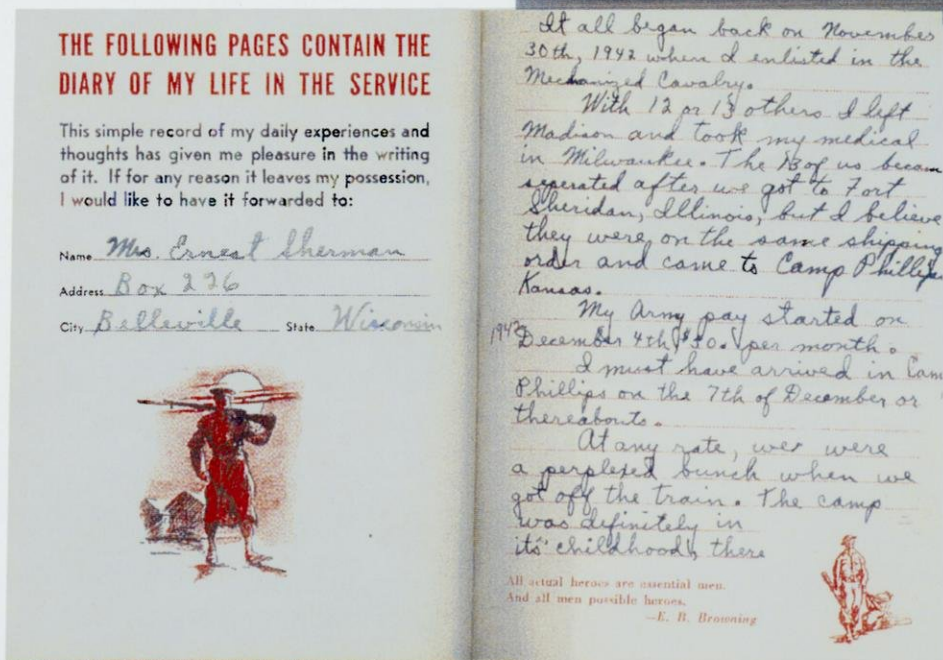 THE FOLLOWING PAGES CONTAIN THE
DIARY OF MY LIFE IN THE SERVICE
This simple record of my daily experiences and
thoughts has given me pleasure in the writing
of it. If for any reason it leaves my possession,
I would like to have it forwarded to:
Name Mrs. Ernest Sherman
Address Box 226
City Belleville State Wisconsin
It all began back on November
30th, 1942 when I enlisted in the
Mechanized Cavalry.
With 12 or 13 others I left
Madison and took my medical
in Milwaukee. The 13 of us becam
seperated after we got to Fort
Sheridan, Illinois, but I believe
they were on the same shipping
order and came to Camp Phillips
Kansas.
My Army pay started on
1942 December 4th, $50. per month.
I must have arrived in Cam
Phillips on the 7th of December or
thereabouts.
At any rate, we were
a perplexed bunch when we
got off the train. The camp
was definitely in
its childhood, there
All actual heroes are essential men.
And all men possible heroes.
—E. B. Browning